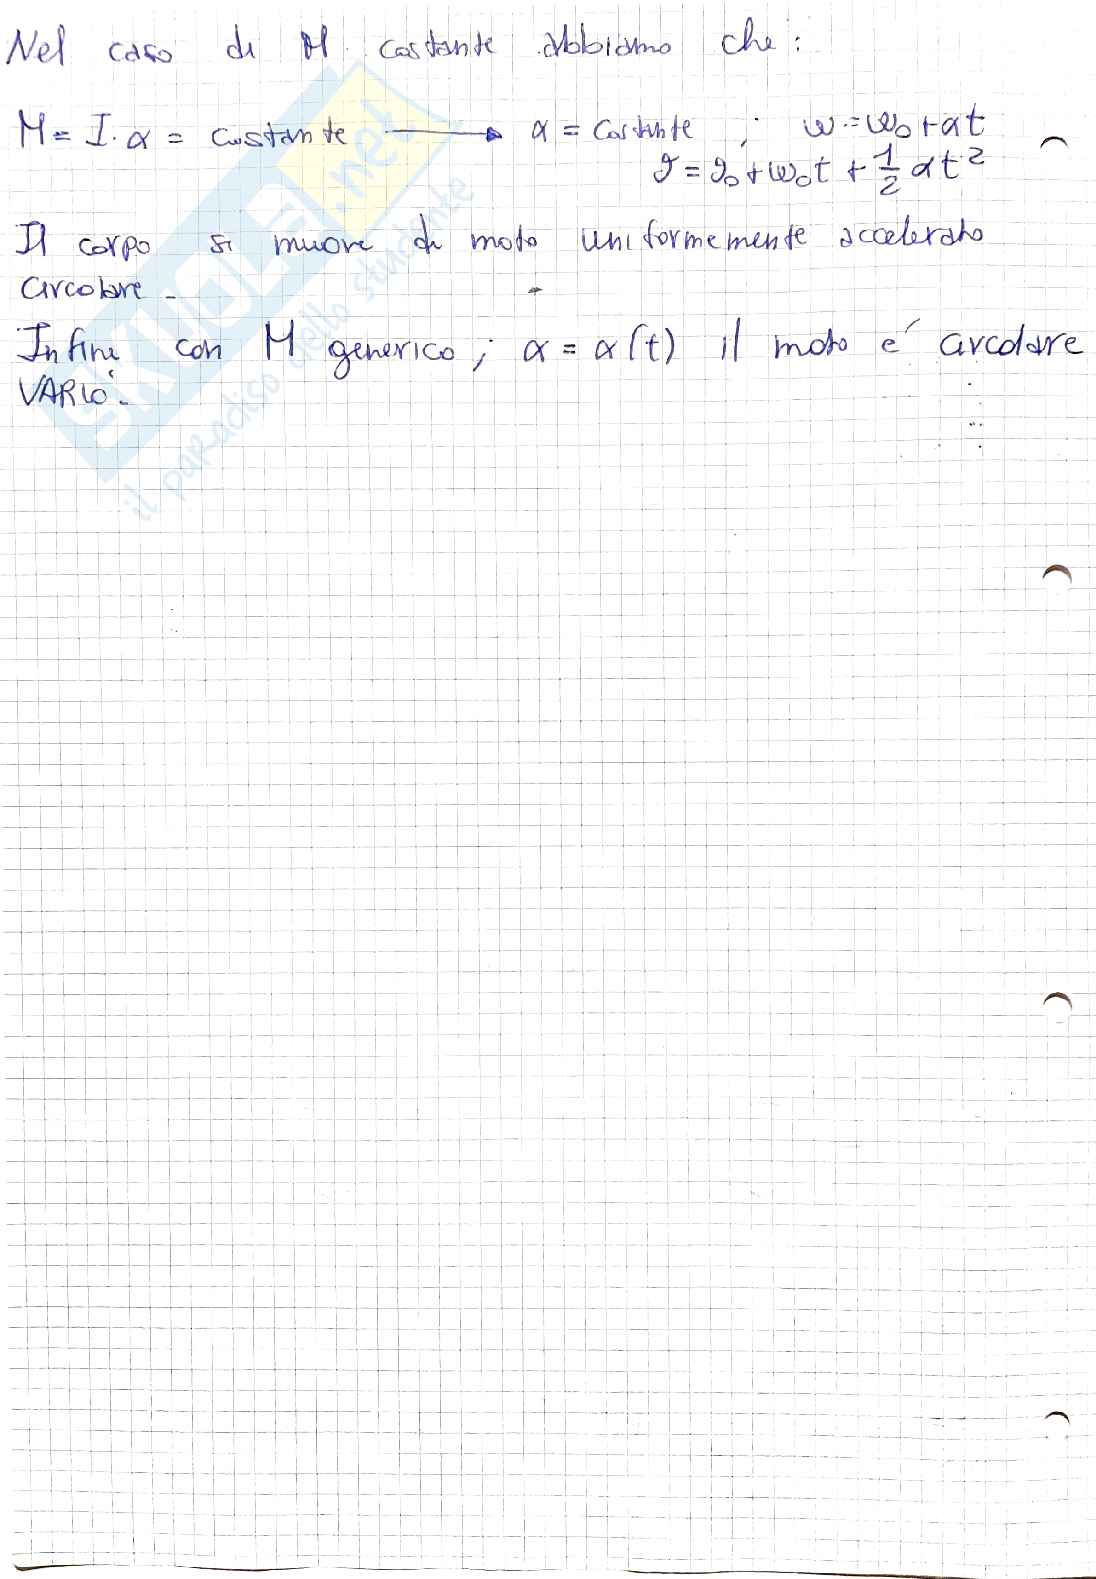 Nel caso di M costante abbiamo che:
M = I·α = costante → α = costante ; ω = ω₀ + αt
ϑ = ϑ₀ + ω₀t + 1/2 αt²
Il corpo si muove di moto uniformemente accelerato
circolare -
Infine con M generico; α = α(t) il moto é circolare
VARIO -
SKUOLA.net
il paradiso dello studente